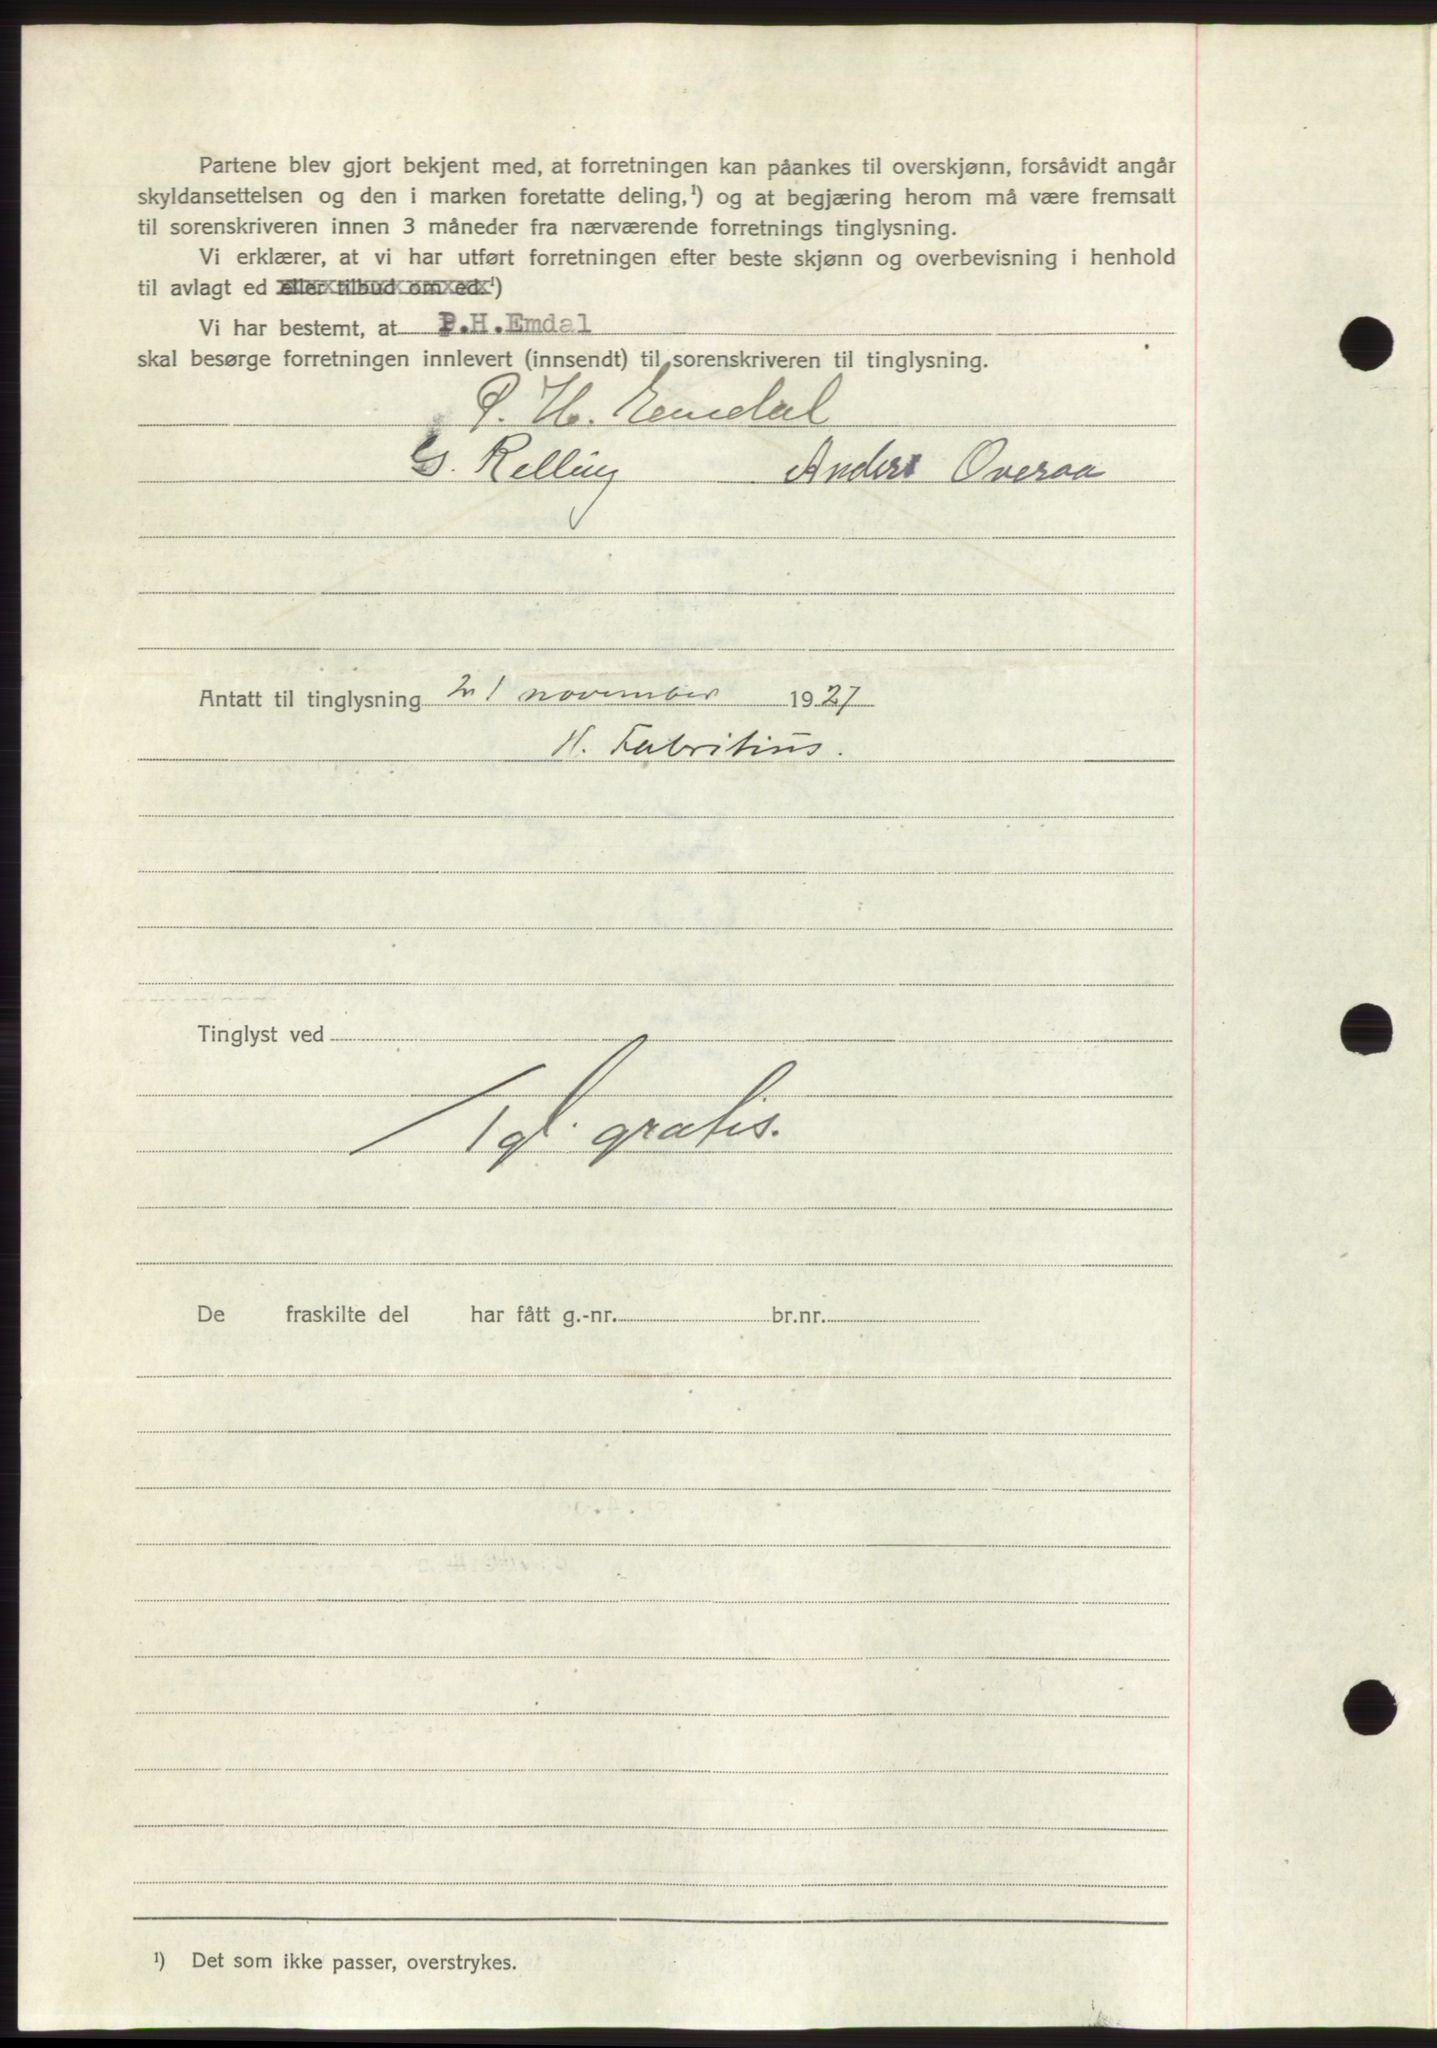 Partene blev gjort bekjent med, at forretningen kan påankes til overskjønn, forsåvidt angår
skyldansettelsen og den i marken foretatte deling,¹) og at begjæring herom må være fremsatt
til sorenskriveren innen 3 måneder fra nærværende forretnings tinglysning.
Vi erklærer, at vi har utført forretningen efter beste skjønn og overbevisning i henhold
til avlagt ed eller tilbud om ed.¹)
Vi har bestemt, at P.H.Emdal
skal besørge forretningen innlevert (innsendt) til sorenskriveren til tinglysning.
P. H. Emdal
Relling Anders Overaa
Antatt til tinglysning 21 november 1927
H. Fabritius.
Tinglyst ved
Tgl. gratis.
De fraskilte del har fått g.-nr. br.nr.
¹) Det som ikke passer, overstrykes.